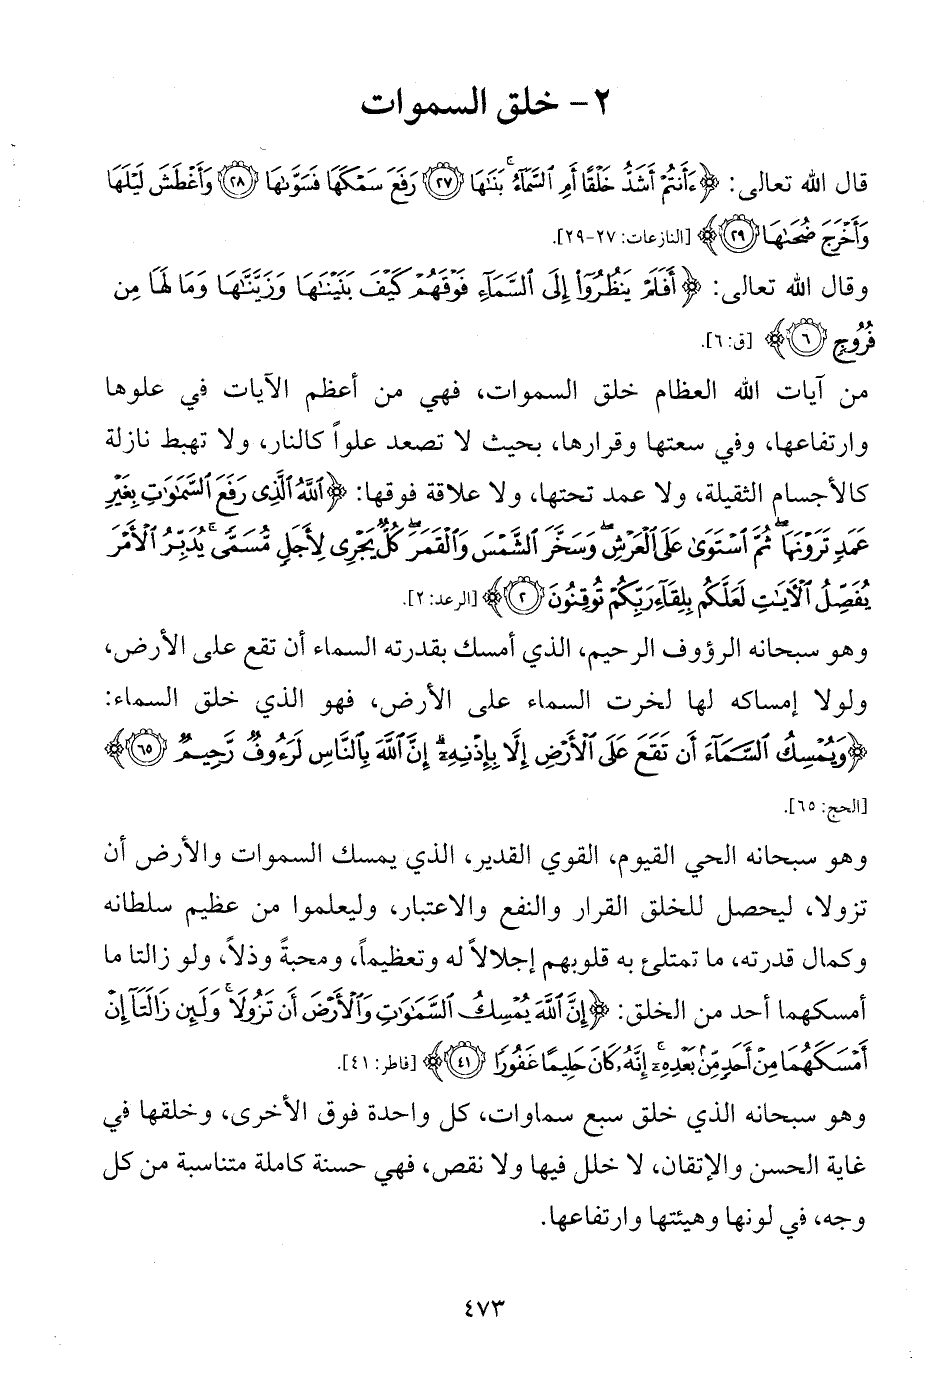 ٢- خلق السموات
قال الله تعالى: ﴿ءَأَنتُمْ أَشَدُّ خَلْقًا أَمِ ٱلسَّمَآءُ ۚ بَنَىٰهَا ٢٧ رَفَعَ سَمْكَهَا فَسَوَّىٰهَا ٢٨ وَأَغْطَشَ لَيْلَهَا
وَأَخْرَجَ ضُحَىٰهَا ٢٩﴾ [النازعات: ٢٧-٢٩].
وقال الله تعالى: ﴿أَفَلَمْ يَنظُرُوٓا۟ إِلَى ٱلسَّمَآءِ فَوْقَهُمْ كَيْفَ بَنَيْنَٰهَا وَزَيَّنَّٰهَا وَمَا لَهَا مِن
فُرُوجٍ ٦﴾ [ق: ٦].
من آيات الله العظام خلق السموات، فهي من أعظم الآيات في علوها
وارتفاعها، وفي سعتها وقرارها، بحيث لا تصعد علواً كالنار، ولا تهبط نازلة
كالأجسام الثقيلة، ولا عمد تحتها، ولا علاقة فوقها: ﴿ٱللَّهُ ٱلَّذِى رَفَعَ ٱلسَّمَٰوَٰتِ بِغَيْرِ
عَمَدٍ تَرَوْنَهَا ۖ ثُمَّ ٱسْتَوَىٰ عَلَى ٱلْعَرْشِ ۖ وَسَخَّرَ ٱلشَّمْسَ وَٱلْقَمَرَ ۖ كُلٌّ يَجْرِى لِأَجَلٍ مُّسَمًّى ۚ يُدَبِّرُ ٱلْأَمْرَ
يُفَصِّلُ ٱلْآيَٰتِ لَعَلَّكُم بِلِقَآءِ رَبِّكُمْ تُوقِنُونَ ٢﴾ [الرعد: ٢].
وهو سبحانه الرؤوف الرحيم، الذي أمسك بقدرته السماء أن تقع على الأرض،
ولولا إمساكه لها لخرت السماء على الأرض، فهو الذي خلق السماء:
﴿وَيُمْسِكُ ٱلسَّمَآءَ أَن تَقَعَ عَلَى ٱلْأَرْضِ إِلَّا بِإِذْنِهِۦٓ ۗ إِنَّ ٱللَّهَ بِٱلنَّاسِ لَرَءُوفٌ رَّحِيمٌ ٦٥﴾
[الحج: ٦٥].
وهو سبحانه الحي القيوم، القوي القدير، الذي يمسك السموات والأرض أن
تزولا، ليحصل للخلق القرار والنفع والاعتبار، وليعلموا من عظيم سلطانه
وكمال قدرته، ما تمتلئ به قلوبهم إجلالاً له وتعظيماً، ومحبةً وذلاً، ولو زالتا ما
أمسكهما أحد من الخلق: ﴿إِنَّ ٱللَّهَ يُمْسِكُ ٱلسَّمَٰوَٰتِ وَٱلْأَرْضَ أَن تَزُولَا ۚ وَلَئِن زَالَتَآ إِنْ
أَمْسَكَهُمَا مِنْ أَحَدٍ مِّنۢ بَعْدِهِۦٓ ۚ إِنَّهُۥ كَانَ حَلِيمًا غَفُورًا ٤١﴾ [فاطر: ٤١].
وهو سبحانه الذي خلق سبع سماوات، كل واحدة فوق الأخرى، وخلقها في
غاية الحسن والإتقان، لا خلل فيها ولا نقص، فهي حسنة كاملة متناسبة من كل
وجه، في لونها وهيئتها وارتفاعها.
٤٧٣